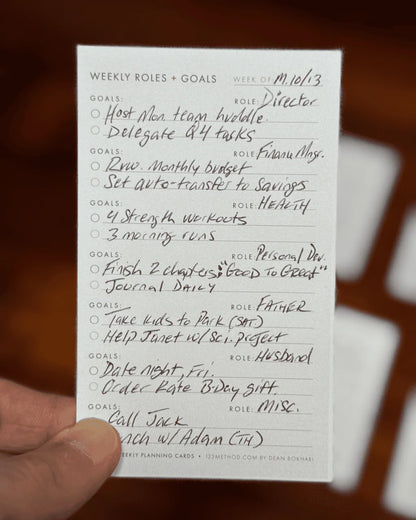 WEEKLY ROLES + GOALS WEEK OF M.10/13
GOALS: ROLE: Director
Host Mon team huddle
Delegate Q4 tasks
GOALS: ROLE: Finance Mngr.
Rvw. Monthly budget
Set auto-transfer to savings
GOALS: ROLE: HEALTH
4 Strength workouts
3 morning runs
GOALS: ROLE: Personal Dev.
Finish 2 chapters: "GOOD TO GREAT"
JOURNAL DAILY
GOALS: ROLE: FATHER
Take kids to Park (SAT)
Help Janet w/ Sci. project
GOALS: ROLE: Husband
Date night, Fri.
Order Kate B-Day gift.
GOALS: ROLE: MISC.
Call Jack
w/ Adam (TH)
WEEKLY PLANNING CARDS • 123METHOD.COM BY DEAN BOKHARI